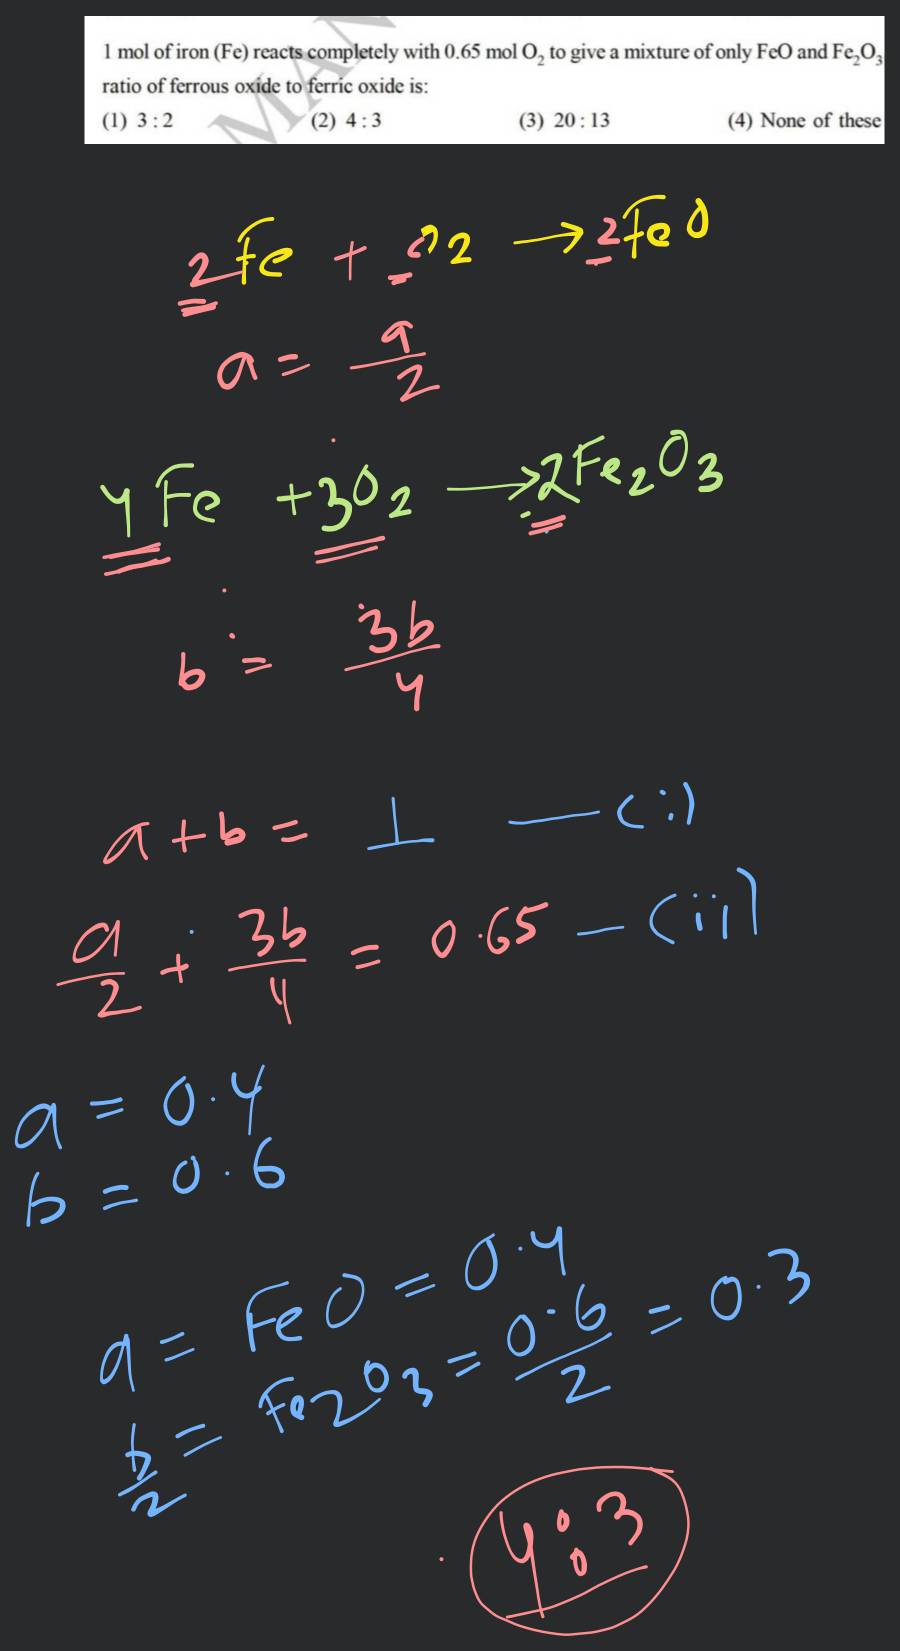 1 mol of iron (Fe) reacts completely with 0.65 mol O₂ to give a mixture of only FeO and Fe₂O₃
ratio of ferrous oxide to ferric oxide is:
(1) 3 : 2 (2) 4 : 3 (3) 20 : 13 (4) None of these
MAN
2Fe + O2 → 2FeO
a = a/2
4Fe + 3O2 → 2Fe2O3
b = 3b/4
a + b = 1 — (i)
a/2 + 3b/4 = 0.65 — (ii)
a = 0.4
b = 0.6
a = FeO = 0.4
b/2 = Fe2O3 = 0.6/2 = 0.3
4:3